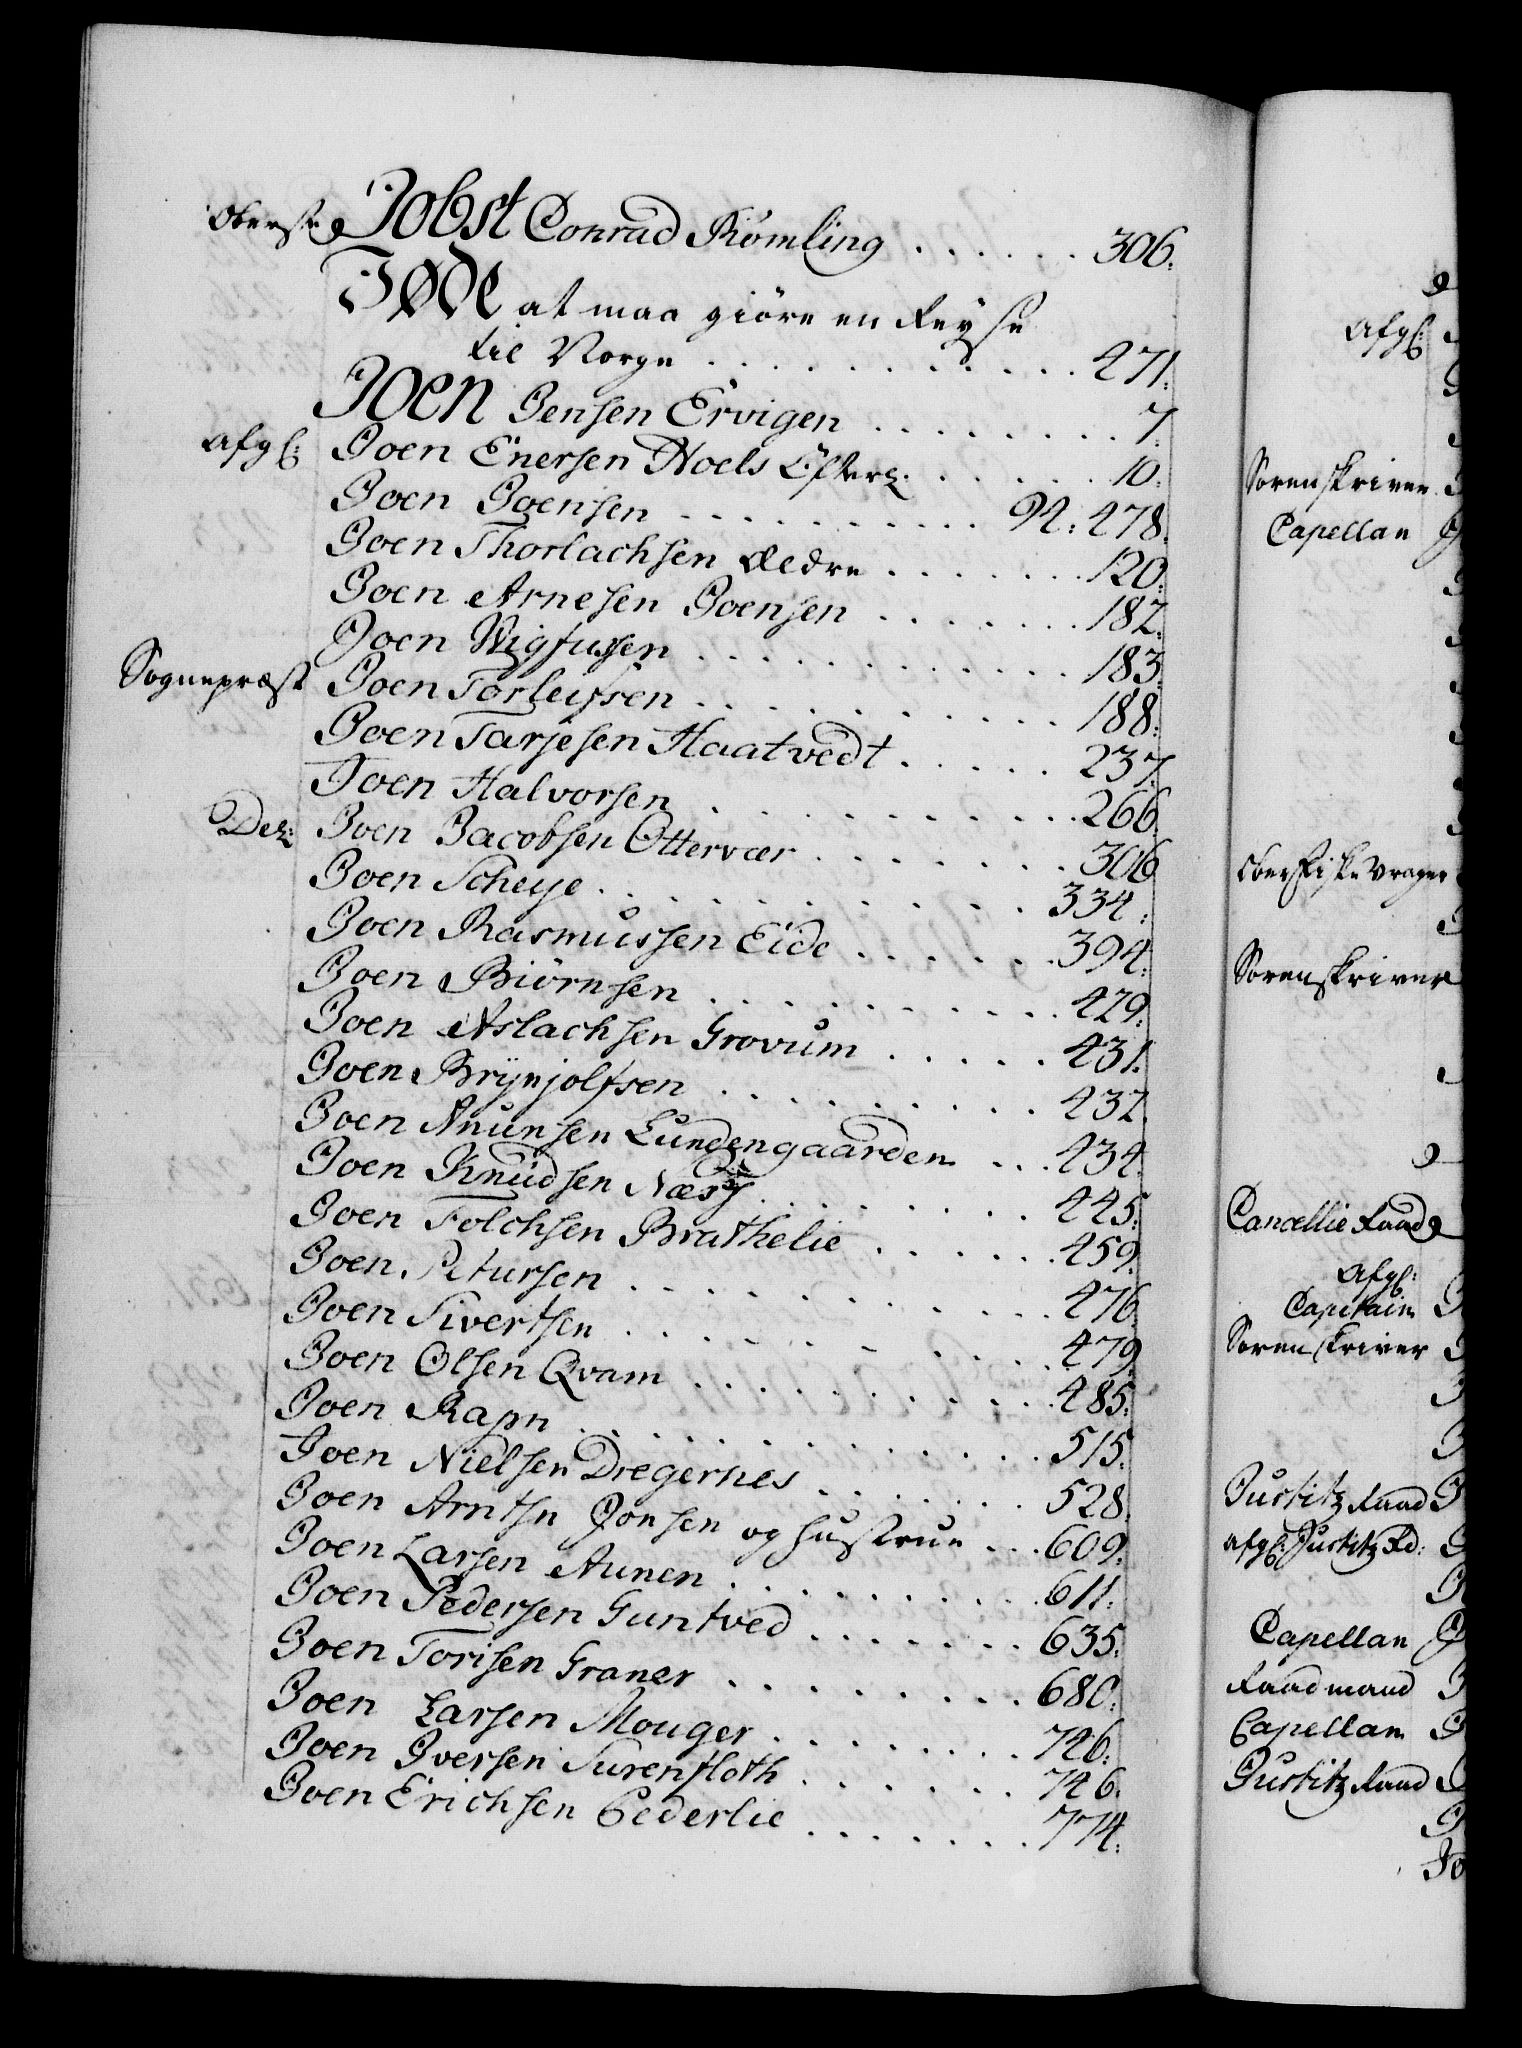 Oberste Jobst Conrad Rømling . . . . . . 306.
Jøde at maa giöre en Reyse
til Norge . . . . . . . . . . . 471.
Joen Jensen Ervigen . . . . . . . . . 7.
Afgl: Joen Enersen Hoels Efterl: . . . . . . 10.
Joen Joensen . . . . . . . . . . 92. 478.
Joen Thorlachsen Ældre . . . . . . . 120.
Joen Arnesen Joensen . . . . . . . 182.
Joen Wigfussen . . . . . . . . . . . . 183.
Sognepræst Joen Torleifsen . . . . . . . . . . . 188.
Joen Tarjesen Haatvedt . . . . . 237.
Joen Halvorsen . . . . . . . . . . . . 266.
Del: Joen Jacobsen Ottervær . . . . . . . . 306
Joen Scheye . . . . . . . . . . . . 334.
Joen Rasmussen Eide . . . . . . 394.
Joen Biörnsen . . . . . . . . . . 429.
Joen Aslachsen Grovum . . . . . 431.
Joen Brynjolfsen . . . . . . . . . 432.
Joen Anunsen Lundengaarden . . . 434.
Joen Knudsen Næss . . . . . . . . 445.
Joen Folchsen Brathelie . . . . . . 459.
Joen Petursen . . . . . . . . . . . . 476.
Joen Sivertsen . . . . . . . . . . . 479.
Joen Olsen Qvam . . . . . . . . . . 485.
Joen Rapn . . . . . . . . . . . . . 515.
Joen Nielsen Dregernes . . . . . . 528.
Joen Arntsn Jonsen og Hustrue . . . 609.
Joen Larsen Aunen . . . . . . . . . 611.
Joen Pedersen Guntved . . . . . . 635.
Joen Torisen Graner . . . . . . . . 680.
Joen Larsen Mouger . . . . . . . . 746.
Joen Iversen Surenfloth . . . . . . 746.
Joen Erichsen Cederlie . . . . . . . 774.
Afgl:
Sorenskriver
Capellan
Ober Fiske Vrager
Sorenskriver
Cancellie Raad
Afgl:
Capitain
Sorenskriver
Justitz Raad
Afgl: Justitz Rd:
Capellan
Raadmand
Capellan
Justitz Raad
Jo